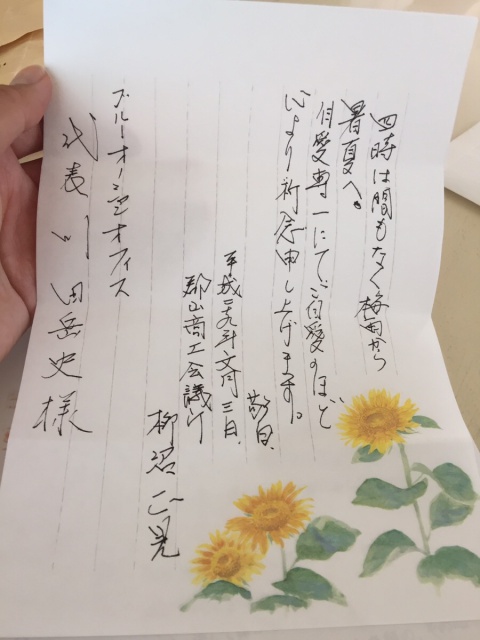 四時は間もなく梅雨から
暑夏へ。
自愛専一にてご自愛のほど
心より祈念申し上げます。
敬白、
平成二九年文月三日、
郡山商工会議所
柳沼
ブルーオーシャンオフィス
代表 川田岳史様